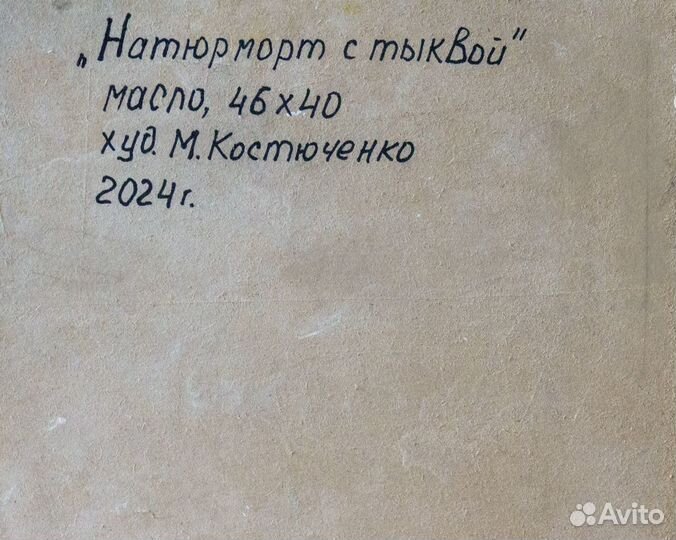 „Натюрморт с тыквой"
масло, 46х40
худ. М. Костюченко
2024 г.
Avito